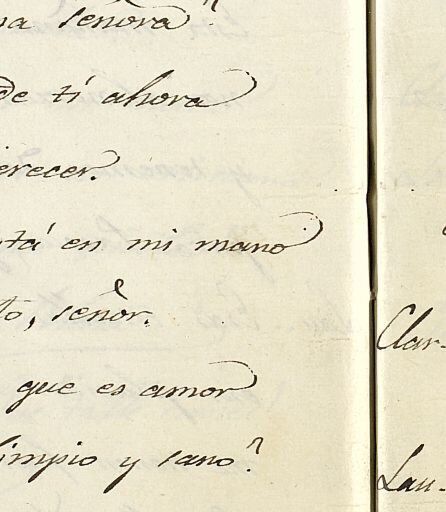 na señora?
de ti ahora
erecer.
tá en mi mano
to, señor.
que es amor
limpio y sano?
Clar-
Lau-